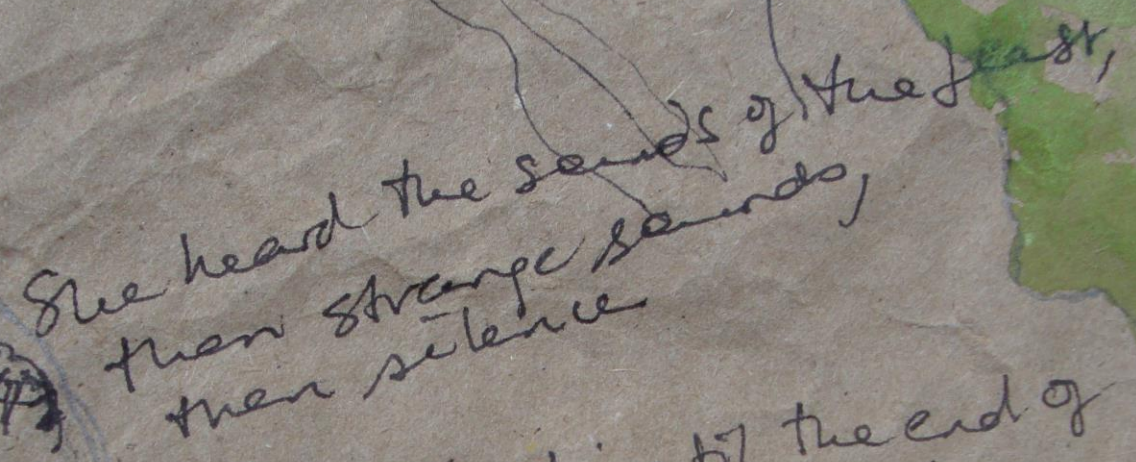 She heard the sounds of the feast,
then strange sounds,
then silence
the end of